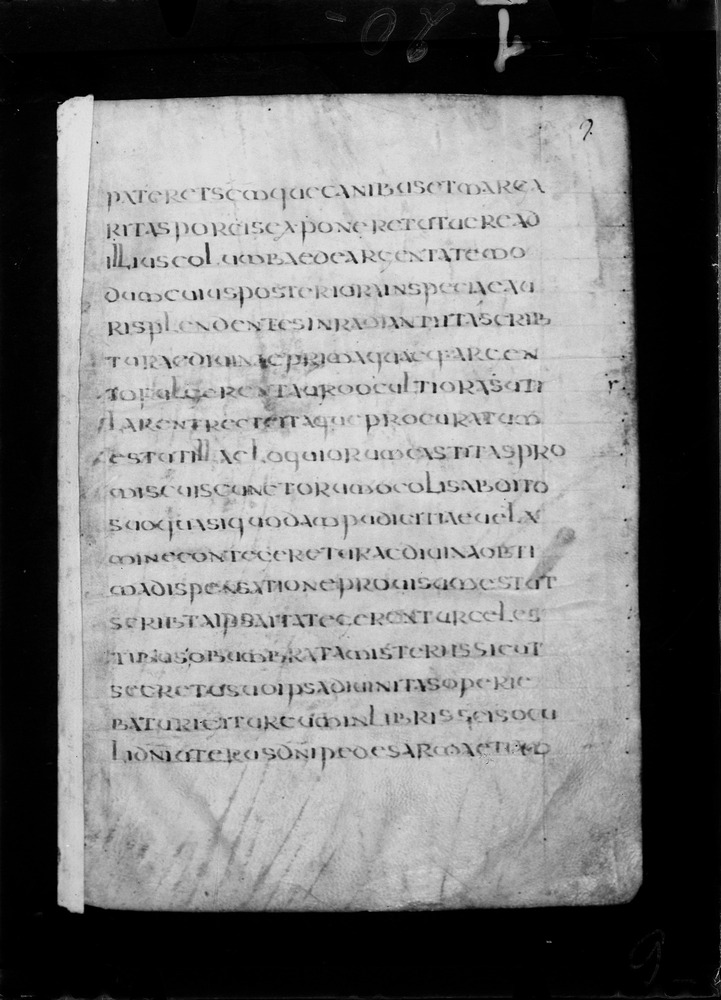 PATERETSEMQUECANIBUSETMARGA
RITASPORCISEXPONERETUTUEREAD
ILLIUSCOLUMBAEDEARGENTATEMO
DUMCUIUSPOSTERIORAINSPECIAEAU
RISPLENDENTESINRADIANTITASCRIB
TURAEDIUINAEPRIMAQUAEQ·ARGEN
TOFULGERENTAUROOCULTIORASUTI
LARENTRECTEITAQUEPROCURATUM
ESTUTILLAELOQUIORUMCASTITASPRO
MISCUISCUNCTORUMOCOLISABDITO
SUOQUASIQUODAMPUDICITIAEUELA
MINECONTEGERETURACDIUINAOBTI
MADISPENSATIONEPROUISUMESTUT
SCRIBTAIPSAITATEGERENTURCELES
TIBUSOBUMBRATAMISTERIISSICUT
SECRETUSUOIPSADIUINITASOPERIE
BATURIGITURCUMINLIBRISSCISOCU
LIDNIUTERUSDNIPEDESARMAETIAM